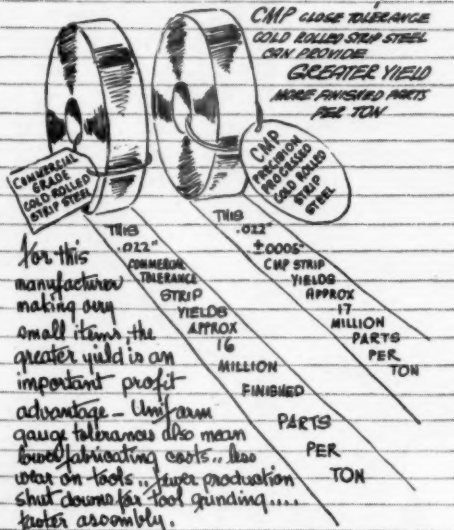 CMP CLOSE TOLERANCE
COLD ROLLED STRIP STEEL
CAN PROVIDE
GREATER YIELD
MORE FINISHED PARTS
PER TON
COMMERCIAL
GRADE
COLD ROLLED
STRIP STEEL
CMP
PRECISION
PROCESSED
COLD ROLLED
STRIP
STEEL
THIS
.022"
COMMERCIAL
TOLERANCE
STRIP
YIELDS
APPROX
16
MILLION
FINISHED
PARTS
PER
TON
THIS
.022"
±.0005"
CMP STRIP
YIELDS
APPROX
17
MILLION
PARTS
PER
TON
For this
manufacturer
making very
small items, the
greater yield is an
important profit
advantage - Uniform
gauge tolerances also mean
lower fabricating costs.. less
wear on tools.. fewer production
shut downs for tool grinding....
faster assembly.